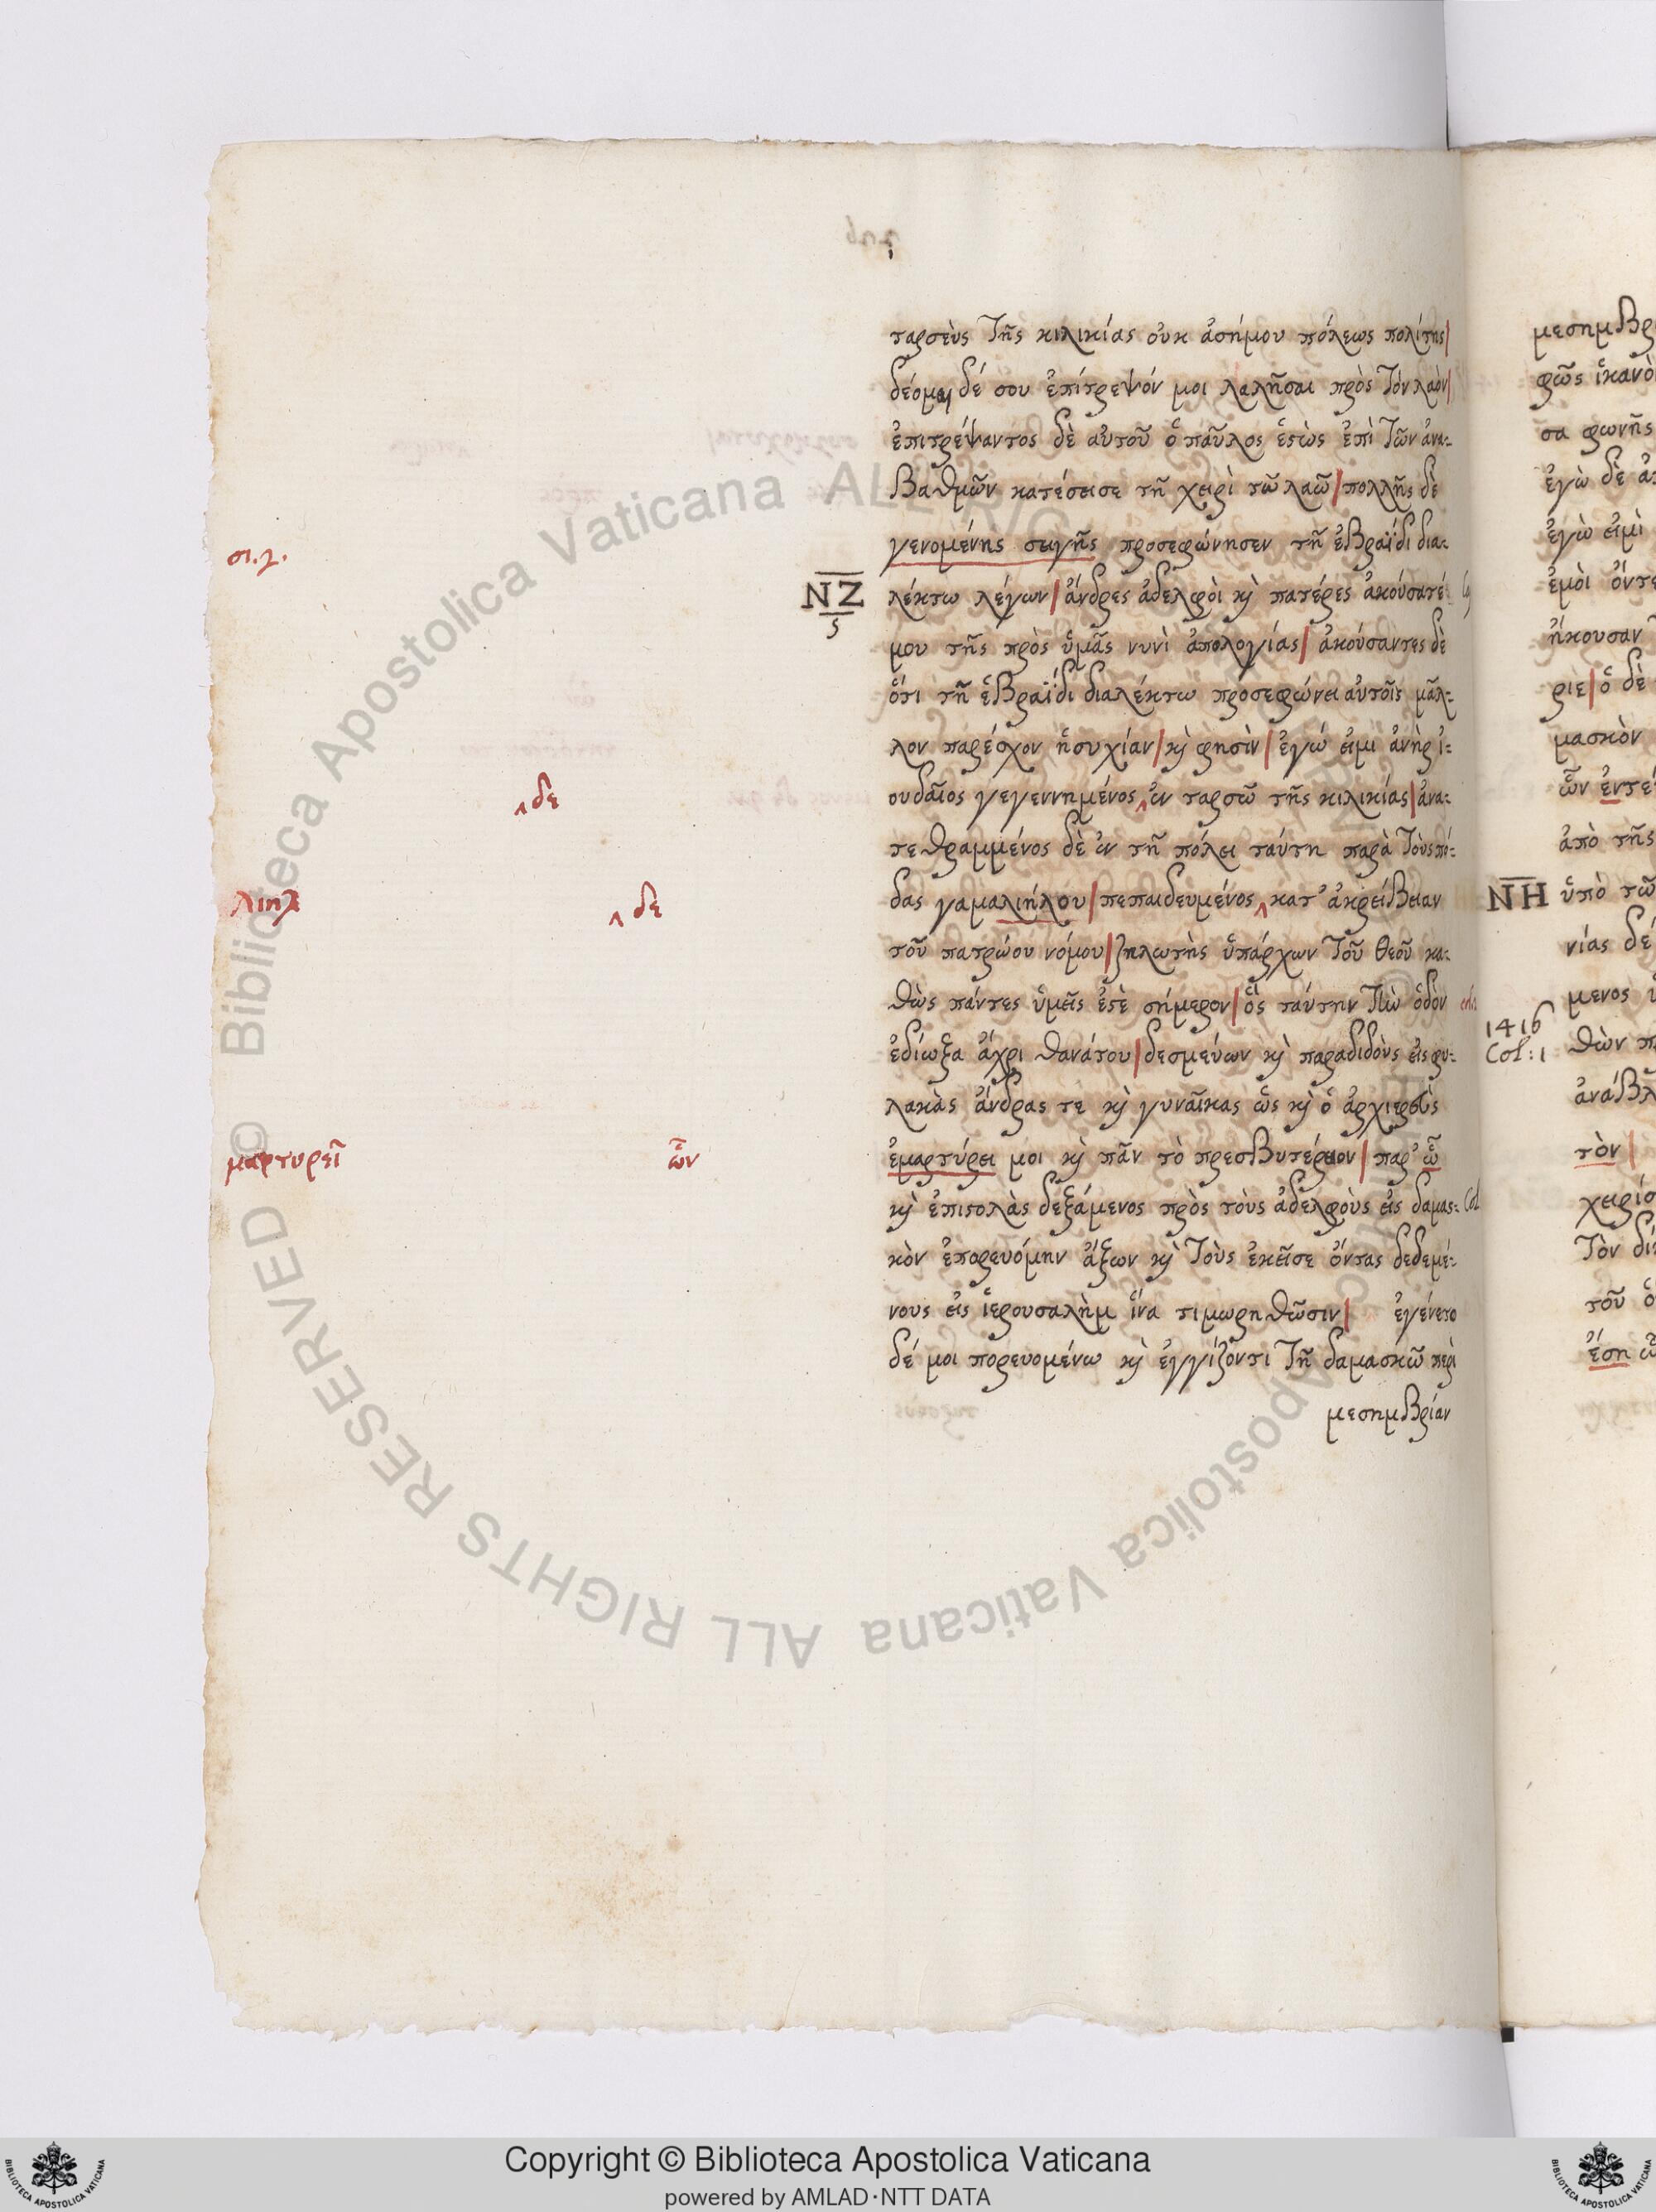 ταρσεὺς τῆς κιλικίας οὐκ ἀσήμου πόλεως πολίτης|
δέομαι δέ σου ἐπίτρεψόν μοι λαλῆσαι πρὸς τὸν λαὸν|
ἐπιτρέψαντος δὲ αὐτοῦ ὁ παῦλος ἑστὼς ἐπὶ τῶν ἀνα-
βαθμῶν κατέσεισε τῆ χειρὶ τῶ λαῶ| πολλῆς δὲ
σι.γ.
γενομένης σειγῆς προσεφώνησεν τῆ ἑβραΐδι δια-
ΝΖ
ς
λέκτω λέγων| ἄνδρες ἀδελφοὶ κὶ πατέρες ἀκούσατέ
μου τῆς πρὸς ὑμᾶς νυνὶ ἀπολογίας| ἀκούσαντες δὲ
ὅτι τῆ ἑβραΐδι διαλέκτω προσεφώνει αὐτοῖς μᾶλ-
λον παρέσχον ἡσυχίαν| κὶ φησὶν| ἐγώ εἰμι ἀνὴρ ἰ-
‸δε
ουδαῖος γεγεννημένος‸ἐν ταρσῶ τῆς κιλικίας| ἀνα-
τεθραμμένος δὲ ἐν τῆ πόλει ταύτη παρὰ τοὺς πό-
λιηλ ‸δε
δας γαμαλιήλου| πεπαιδευμένος‸κατ' ἀκρείβειαν
τοῦ πατρώου νόμου| ζηλωτὴς ὑπάρχων τοῦ θεοῦ κα-
θὼς πάντες ὑμεῖς ἐστὲ σήμερον| ὃς ταύτην τὴν ὁδὸν
ἐδίωξα ἄχρι θανάτου| δεσμεύων κὶ παραδιδοὺς εἰς φυ-
λακὰς ἄνδρας τε κὶ γυναῖκας ὡς κὶ ὁ ἀρχιερεὺς
μαρτυρεῖ ὧν
ἐμαρτύρει μοι κὶ πᾶν τὸ πρεσβυτέριον| παρ' ὧ
κὶ ἐπιστολὰς δεξάμενος πρὸς τοὺς ἀδελφοὺς εἰς δαμασ-
κὸν ἐπορευόμην ἄξων κὶ τοὺς ἐκεῖσε ὄντας δεδεμέ-
νους εἰς ἱερουσαλὴμ ἵνα τιμωρηθῶσιν| ἐγένετο
δέ μοι πορευομένω κὶ ἐγγίζοντι τῆ δαμασκῶ περὶ
μεσημβρίαν
μεσημβρ
φῶς ἱκανὸ
σα φωνῆς
ἐγὼ δὲ ἀ
ἐγὼ εἰμὶ
ἐμοὶ ὄντε
ἤκουσαν
ριε| ὁ δὲ
μασκὸν
ὧν ἐντέ
ἀπὸ τῆς
ΝΗ ὑπὸ τῶ
νίας δέ
μενος
1416
Col: 1
θὼν π
ἀνάβλ
τὸν|
χειρίσ
τὸν δί
τοῦ
ἔση
Copyright © Biblioteca Apostolica Vaticana
powered by AMLAD·NTT DATA
© Biblioteca Apostolica Vaticana ALL RIGHTS RESERVED
BIBLIOTECA APOSTOLICA VATICANA
BIBLIOTECA APOSTOLICA VATICANA